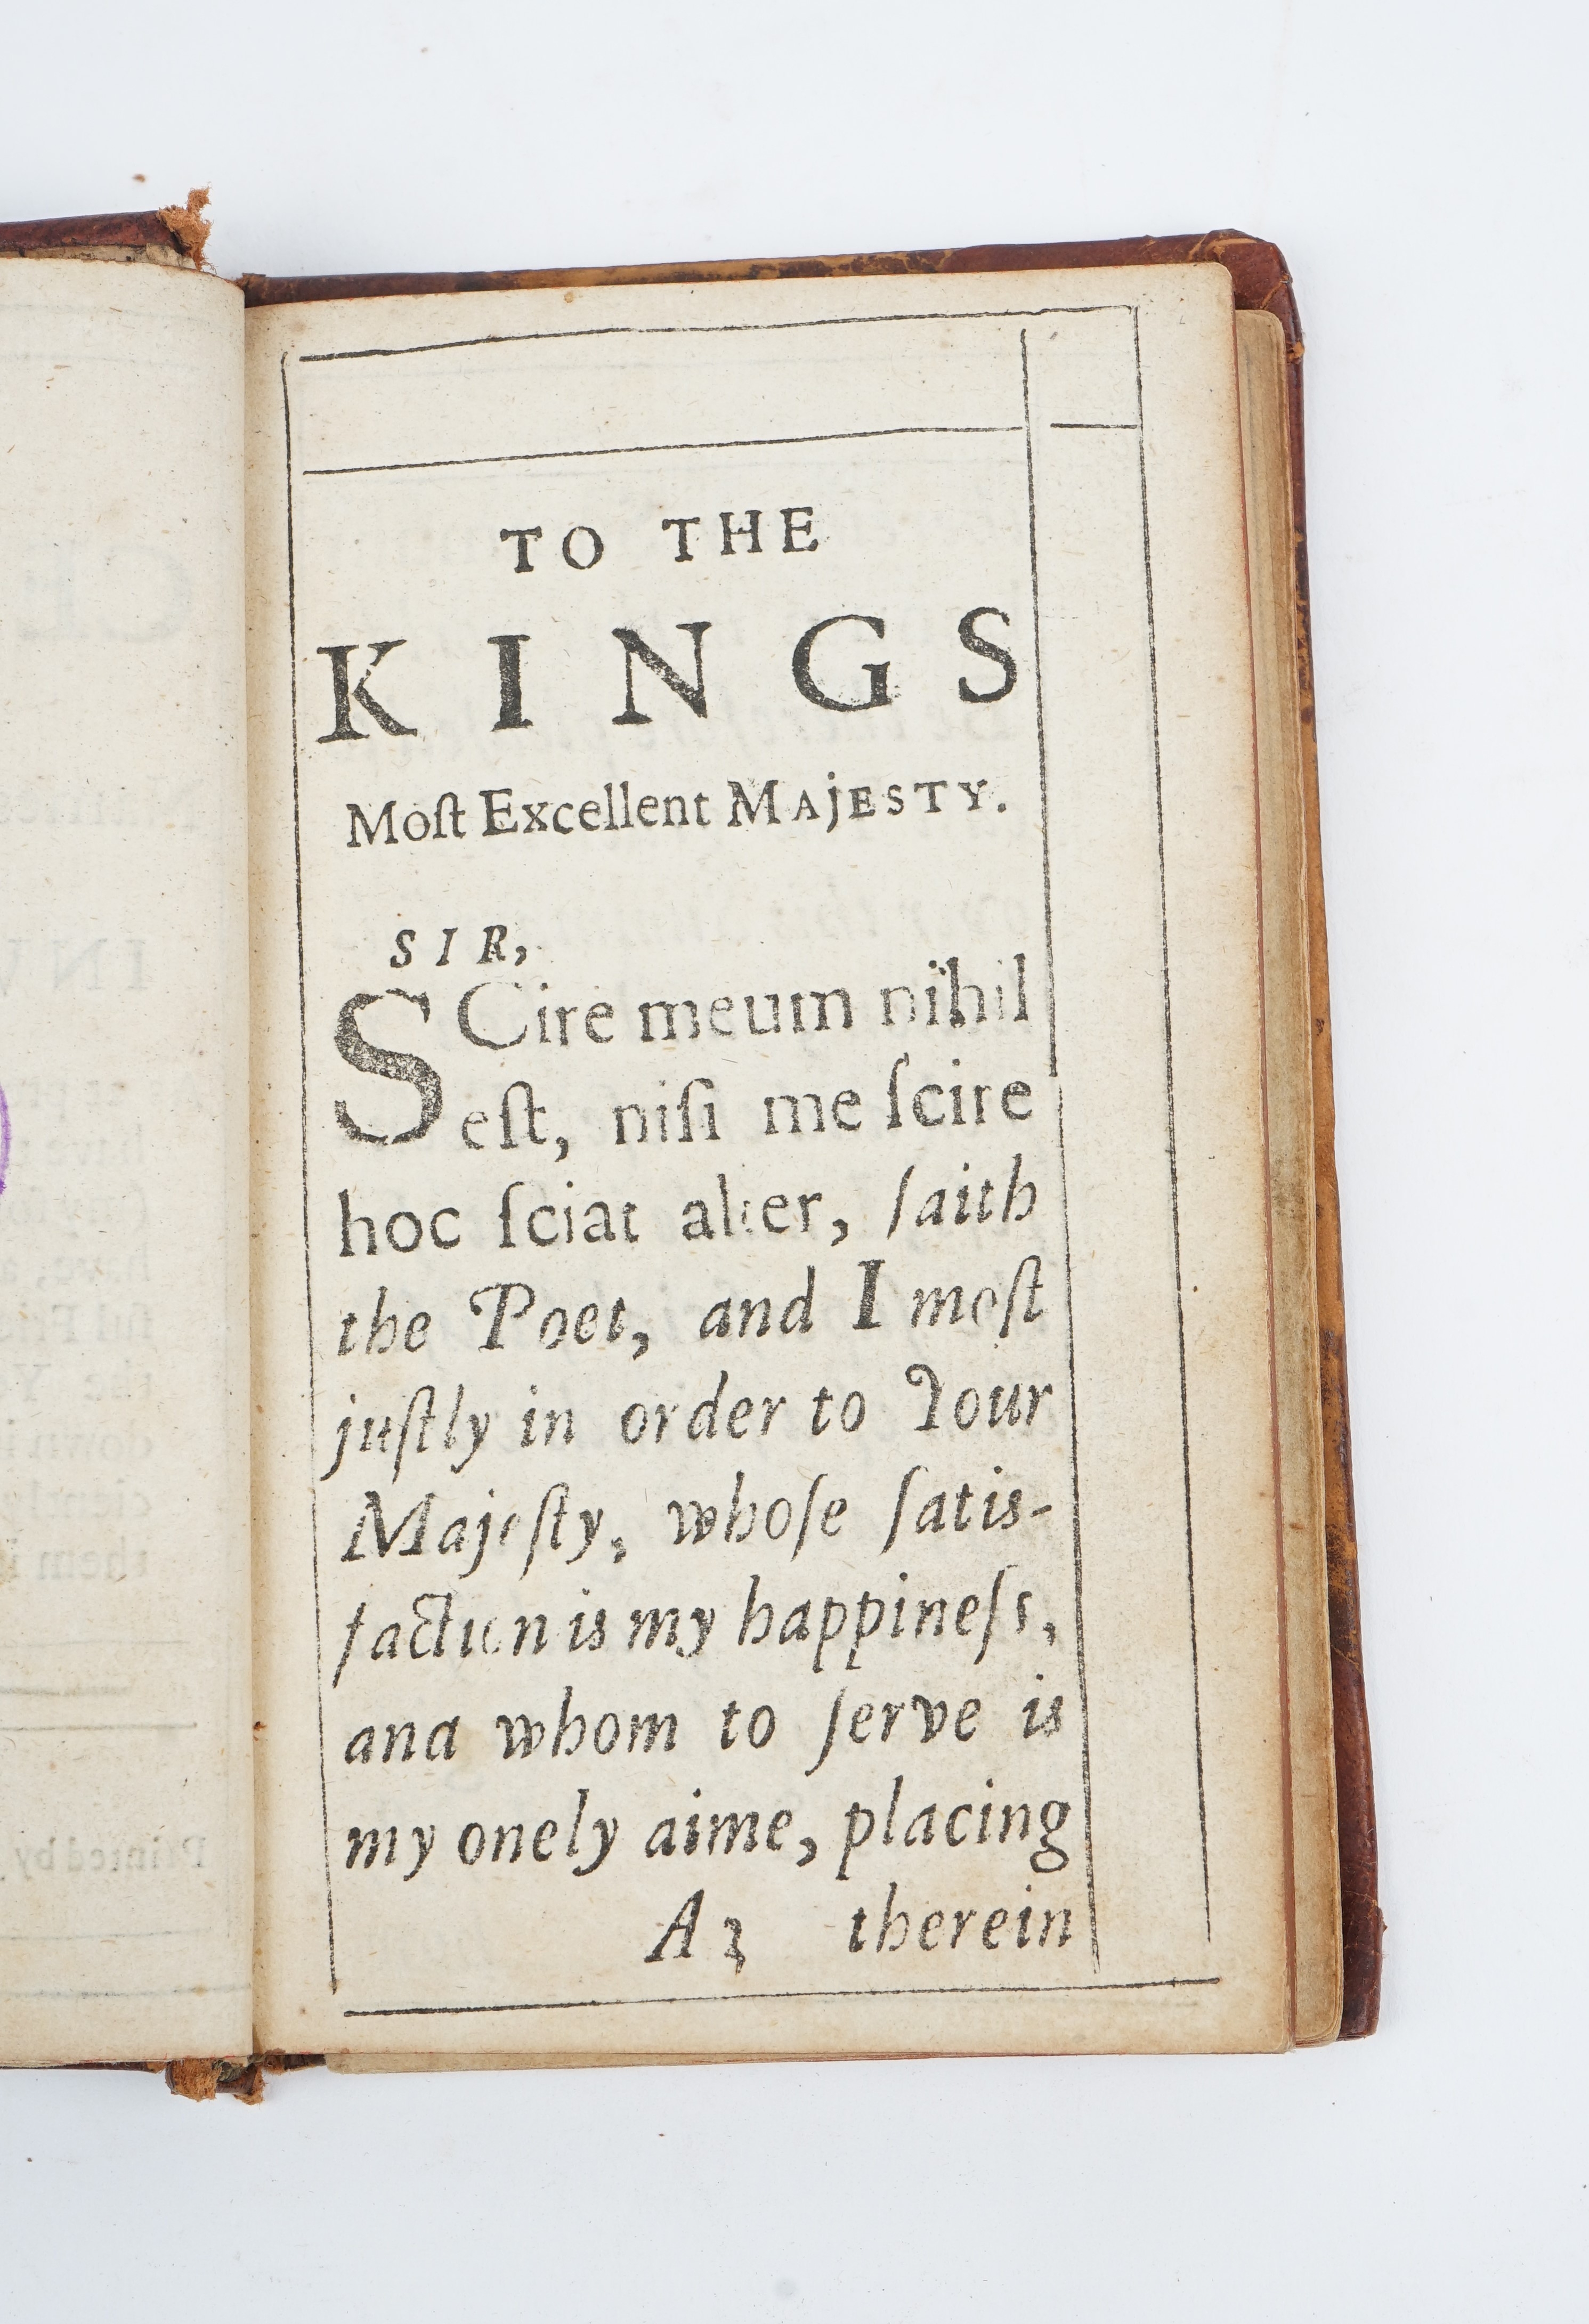 TO THE
KINGS
Moſt Excellent MAjESTY.
SIR,
SCire meum nihil
eſt, niſi me ſcire
hoc ſciat alter, ſaith
the Poet, and I moſt
juſtly in order to Your
Majeſty, whoſe ſatis-
faction is my happineſs,
and whom to ſerve is
my onely aime, placing
A3 therein